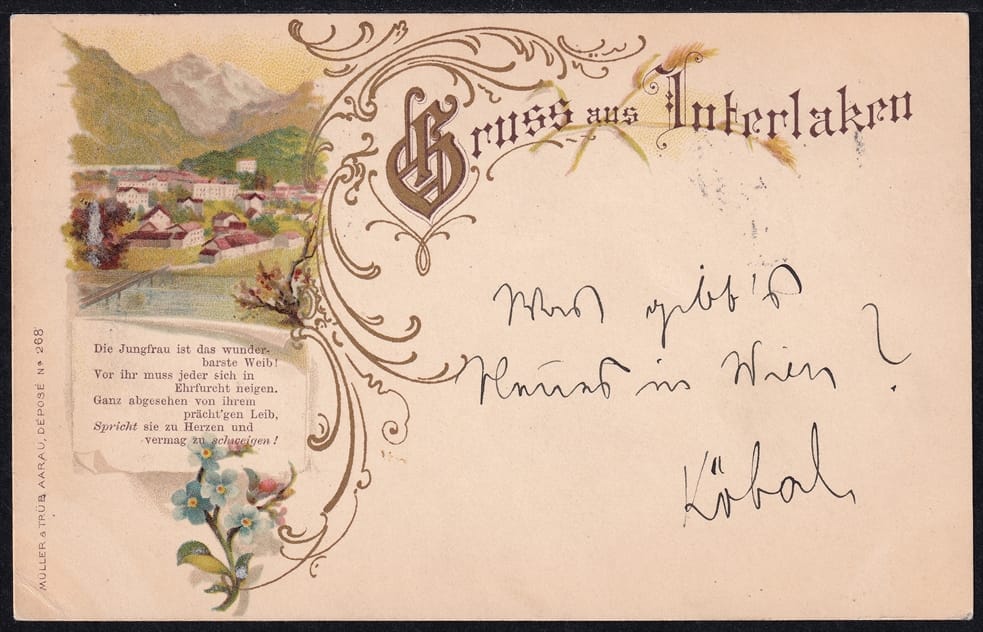 Gruss aus Interlaken
Die Jungfrau ist das wunder-
barste Weib!
Vor ihr muss jeder sich in
Ehrfurcht neigen.
Ganz abgesehen von ihrem
prächt'gen Leib,
Spricht sie zu Herzen und
vermag zu schweigen!
Was gibt's
Neues in Wien ?
Köbal
MÜLLER & TRÜB, AARAU, DEPOSÉ No 268